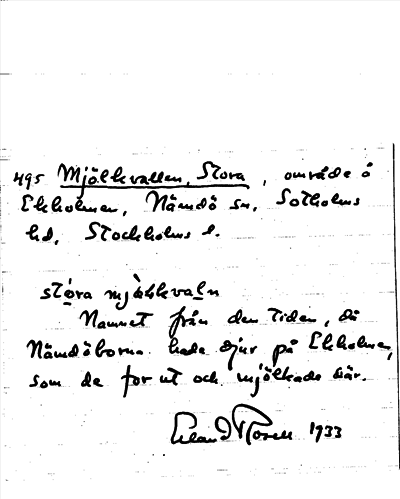 495 Mjölkvallen, Stora, område å
Ekholmen, Nämdö sn, Sotholms
hd, Stockholms l.
stóra mjòlkvaln
Namnet från den tiden, då
Nämdöborna hade djur på Ekholmen,
som de for ut och mjölkade där.
Erland Rosell 1933